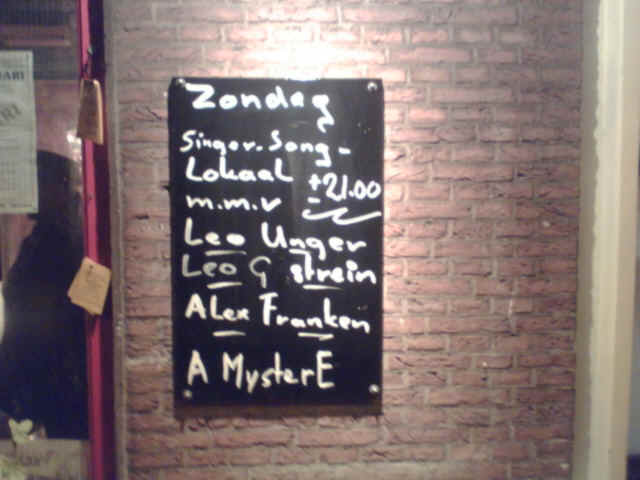 Zondag
Singer. Song -
Lokaal ±21.00
m.m.v
Leo Unger
Leo G strein
Alex Franken
A MysterE